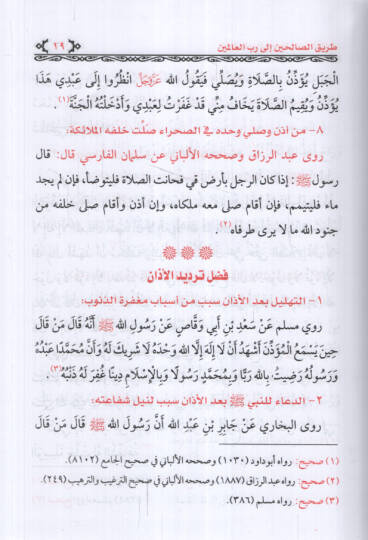 طريق الصالحين إلى رب العالمين ١٩
الْجَبَلِ يُؤَذِّنُ بِالصَّلَاةِ وَيُصَلِّي فَيَقُولُ الله عَزَّوَجَلَّ انْظُرُوا إِلَى عَبْدِي هَذَا
يُؤَذِّنُ وَيُقِيمُ الصَّلَاةَ يَخَافُ مِنِّي قَدْ غَفَرْتُ لِعَبْدِي وَأَدْخَلْتُهُ الْجَنَّةَ(١)
٨- من أذن وصلي وحده في الصحراء صلَّت خلفه الملائكة:
روى عبد الرزاق وصححه الألباني عن سلمان الفارسي قال: قال
رسول ﷺ: إذا كان الرجل بأرض قي فحانت الصلاة فليتوضأ، فإن لم يجد
ماء فليتيمم، فإن أقام صلى معه ملكاه، وإن أذن وأقام صلى خلفه من
جنود الله ما لا يرى طرفاه(٢).
فضل ترديد الأذان
١- التهليل بعد الأذان سبب من أسباب مغفرة الذنوب:
روي مسلم عَنْ سَعْدِ بْنِ أَبِي وَقَّاصٍ عَنْ رَسُولِ الله ﷺ أَنَّهُ قَالَ مَنْ قَالَ
حِينَ يَسْمَعُ الْمُؤَذِّنَ أَشْهَدُ أَنْ لَا إِلَهَ إِلَّا الله وَحْدَهُ لَا شَرِيكَ لَهُ وَأَنَّ مُحَمَّدًا عَبْدُهُ
وَرَسُولُهُ رَضِيتُ بِالله رَبًّا وَبِمُحَمَّدٍ رَسُولًا وَبِالْإِسْلَامِ دِينًا غُفِرَ لَهُ ذَنْبُهُ(٣).
٢- الدعاء للنبي ﷺ بعد الأذان سبب لنيل شفاعته:
روى البخاري عَنْ جَابِرِ بْنِ عَبْدِ الله أَنَّ رَسُولَ الله ﷺ قَالَ مَنْ قَالَ
(١) صحيح: رواه أبوداود (١٠٣٠) وصححه الألباني في صحيح الجامع (٨١٠٢).
(٢) صحيح: رواه عبد الرزاق (١٨٨٧) وصححه الألباني في صحيح الترغيب والترهيب (٢٤٩).
(٣) صحيح: رواه مسلم (٣٨٦).